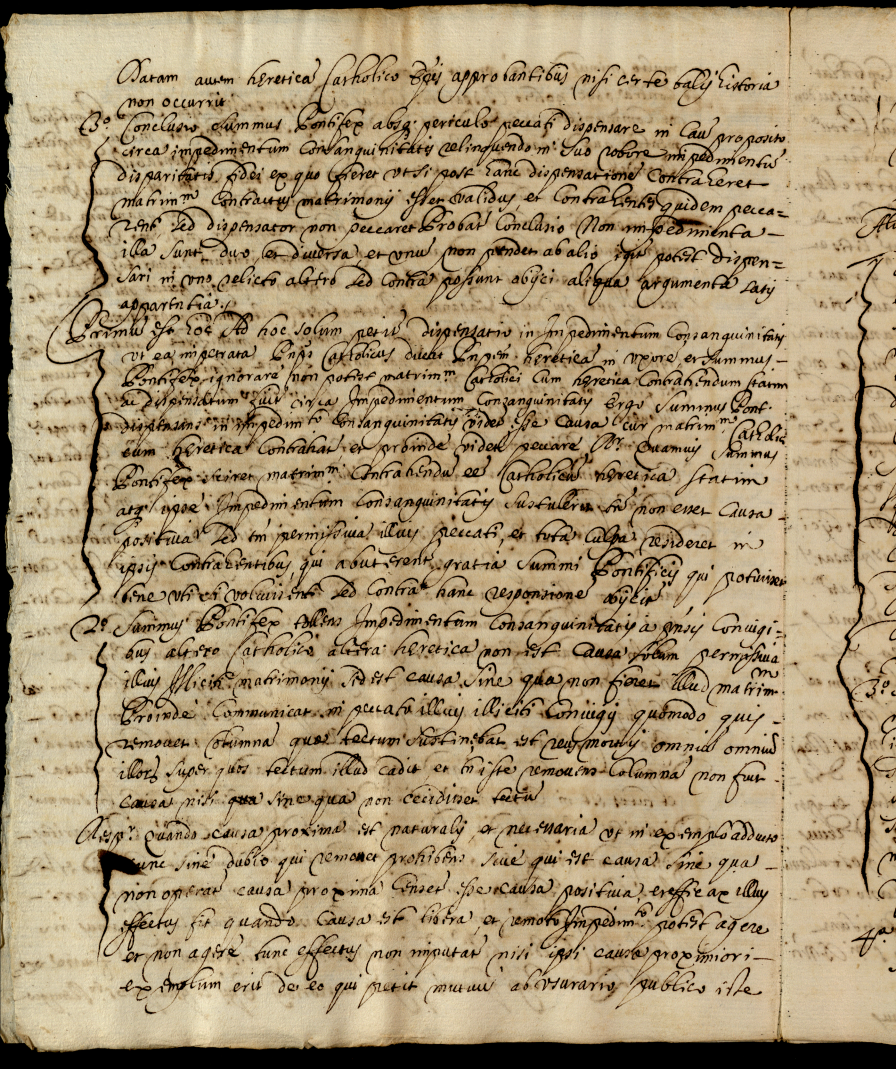 Datam autem heretica Catholico Epis approbantibus nisi certe talis historia
non occurrit
3.º Conclusio Summus Pontifex absq. periculo peccati dispensare in Casu proposito
circa impedimentum Consanguinitatis relinquendo in suo robore impedimentũ
disparitatis fidei ex quo fieret ut si post hanc dispensationẽ Contraheret
matrimm Contractus matrimonij esset validus et Contrahentes quidem pecca=
rent sed dispensator non peccaret Probat Conclusio Nam impedimenta
illa sunt duo, et diversa, et unũ non pendet ab alio igit potest dispen=
sari in uno relicto altero sed Contra possunt obijci aliqua argumenta satis
apparentia
Primũ est hoc Ad hoc solum petit dispensatio in Impedimentum Consanguinitatis
ut ea impetrata Catholicus ducat hereticã in uxorẽ, et summus
Pontifex ignorare non potest matrimm Catholici cum heretica Contrahendum statim
ac dispensatum fuit circa Impedimentum Consanguinitatis Ergo Summus Pont.
dispensans in impedimto Consanguinitatis videt esse Causa cur matrimm Catholicus
cum heretica Contrahat et proinde videt peccare Rr. Quamvis Summus
Pontifex sciret matrimm Contrahendũ eẽ Catholicũ heretica statim
atq. ipse Impedimentum Consanguinitatis sustulerit tñ non esset Causa
positiva sed tm permissiva illius peccati, et tota Culpa resideret in
ipsis Contrahentibus, qui abuterent gratia Summi Pontificis qui potuissent
bene uti si voluissent sed Contra hanc responsionẽ obijcit
2.º Summus Pontifex tollens Impedimentum Consanguinitatis a Coniugi=
bus altero Catholico altera heretica non est Causa solum permissiva
illius Illiciti matrimonij sed est causa sine qua non fieret illud matrimm
Proinde Communicat in peccato illius illiciti Coniugij quomodo quis
removet Columnã que tectum sustinebat est reus mortis omniũ
illorũ super quos tectum illud cadit et tñ iste removens Columnã non fuit
causa nisi sine qua non cecidisset tectũ
Resp. Quando causa proxima est naturalis, et necessaria ut in exemplo adducto
tunc sine dubio qui removet prohibens sive qui est causa sine qua
non operat causa proxima Censet esse causa positiva, et efficax illius
effectus sit quando Causa est libera, et remoto Impedimto potest agere
et non agere tunc effectus non imputat nisi ipsi causæ proximiori
exemplum erit de eo qui petit mutuũ ab usurario publico iste